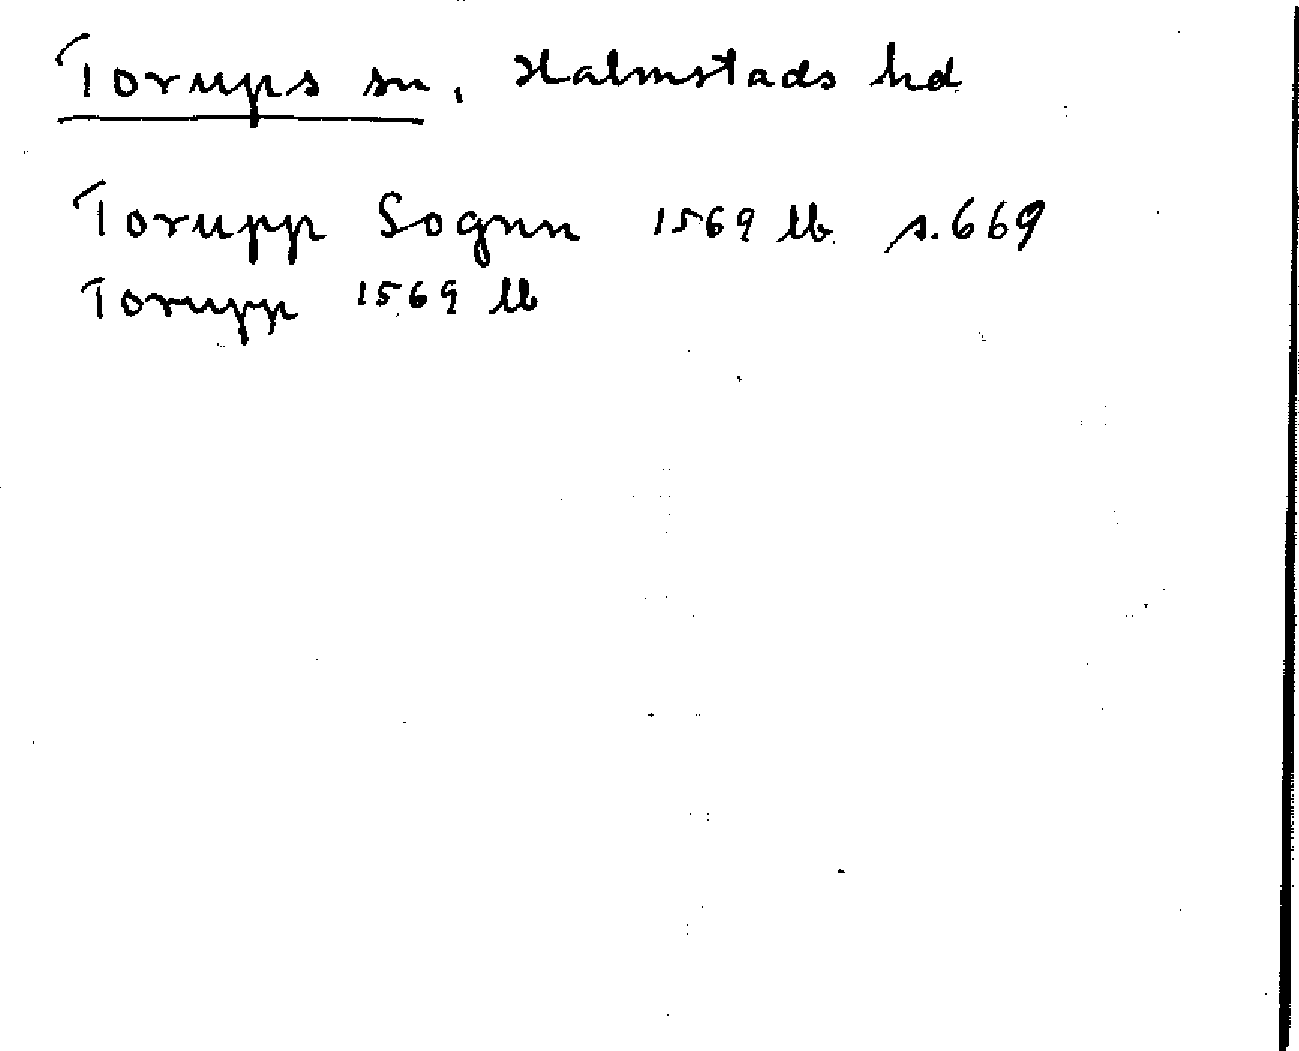 Torups sn, Halmstads hd
Torupp Sognn 1569 lb s. 669
Torupp 1569 lb